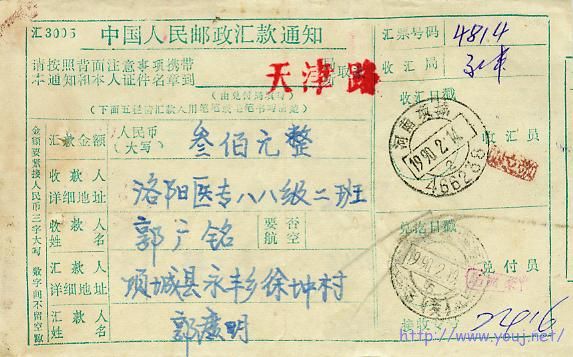 汇3005
中国人民邮政汇款通知
请按照背面注意事项携带
本通知和本人证件名章到
取款
天津路
(由兑付局填写)
(下面五栏请汇款人用笔或毛笔书写清楚)
汇款金额
人民币
(大写)
叁佰元整
收款人
详细地址
洛阳医专八八级二班
收款人
姓名
郭广铭
要否
航空
汇款人
详细地址
项城县永丰乡徐坤村
汇款人
姓名
郭广明
金额要紧接人民币三字大写
数字间不留空隙
汇票号码
4814
收汇局
收汇日戳
收汇员
河南项城
1990.2.14
466238
兑讫日戳
1990.2.1
兑付员
接收号
2416
http://www.youj.net/